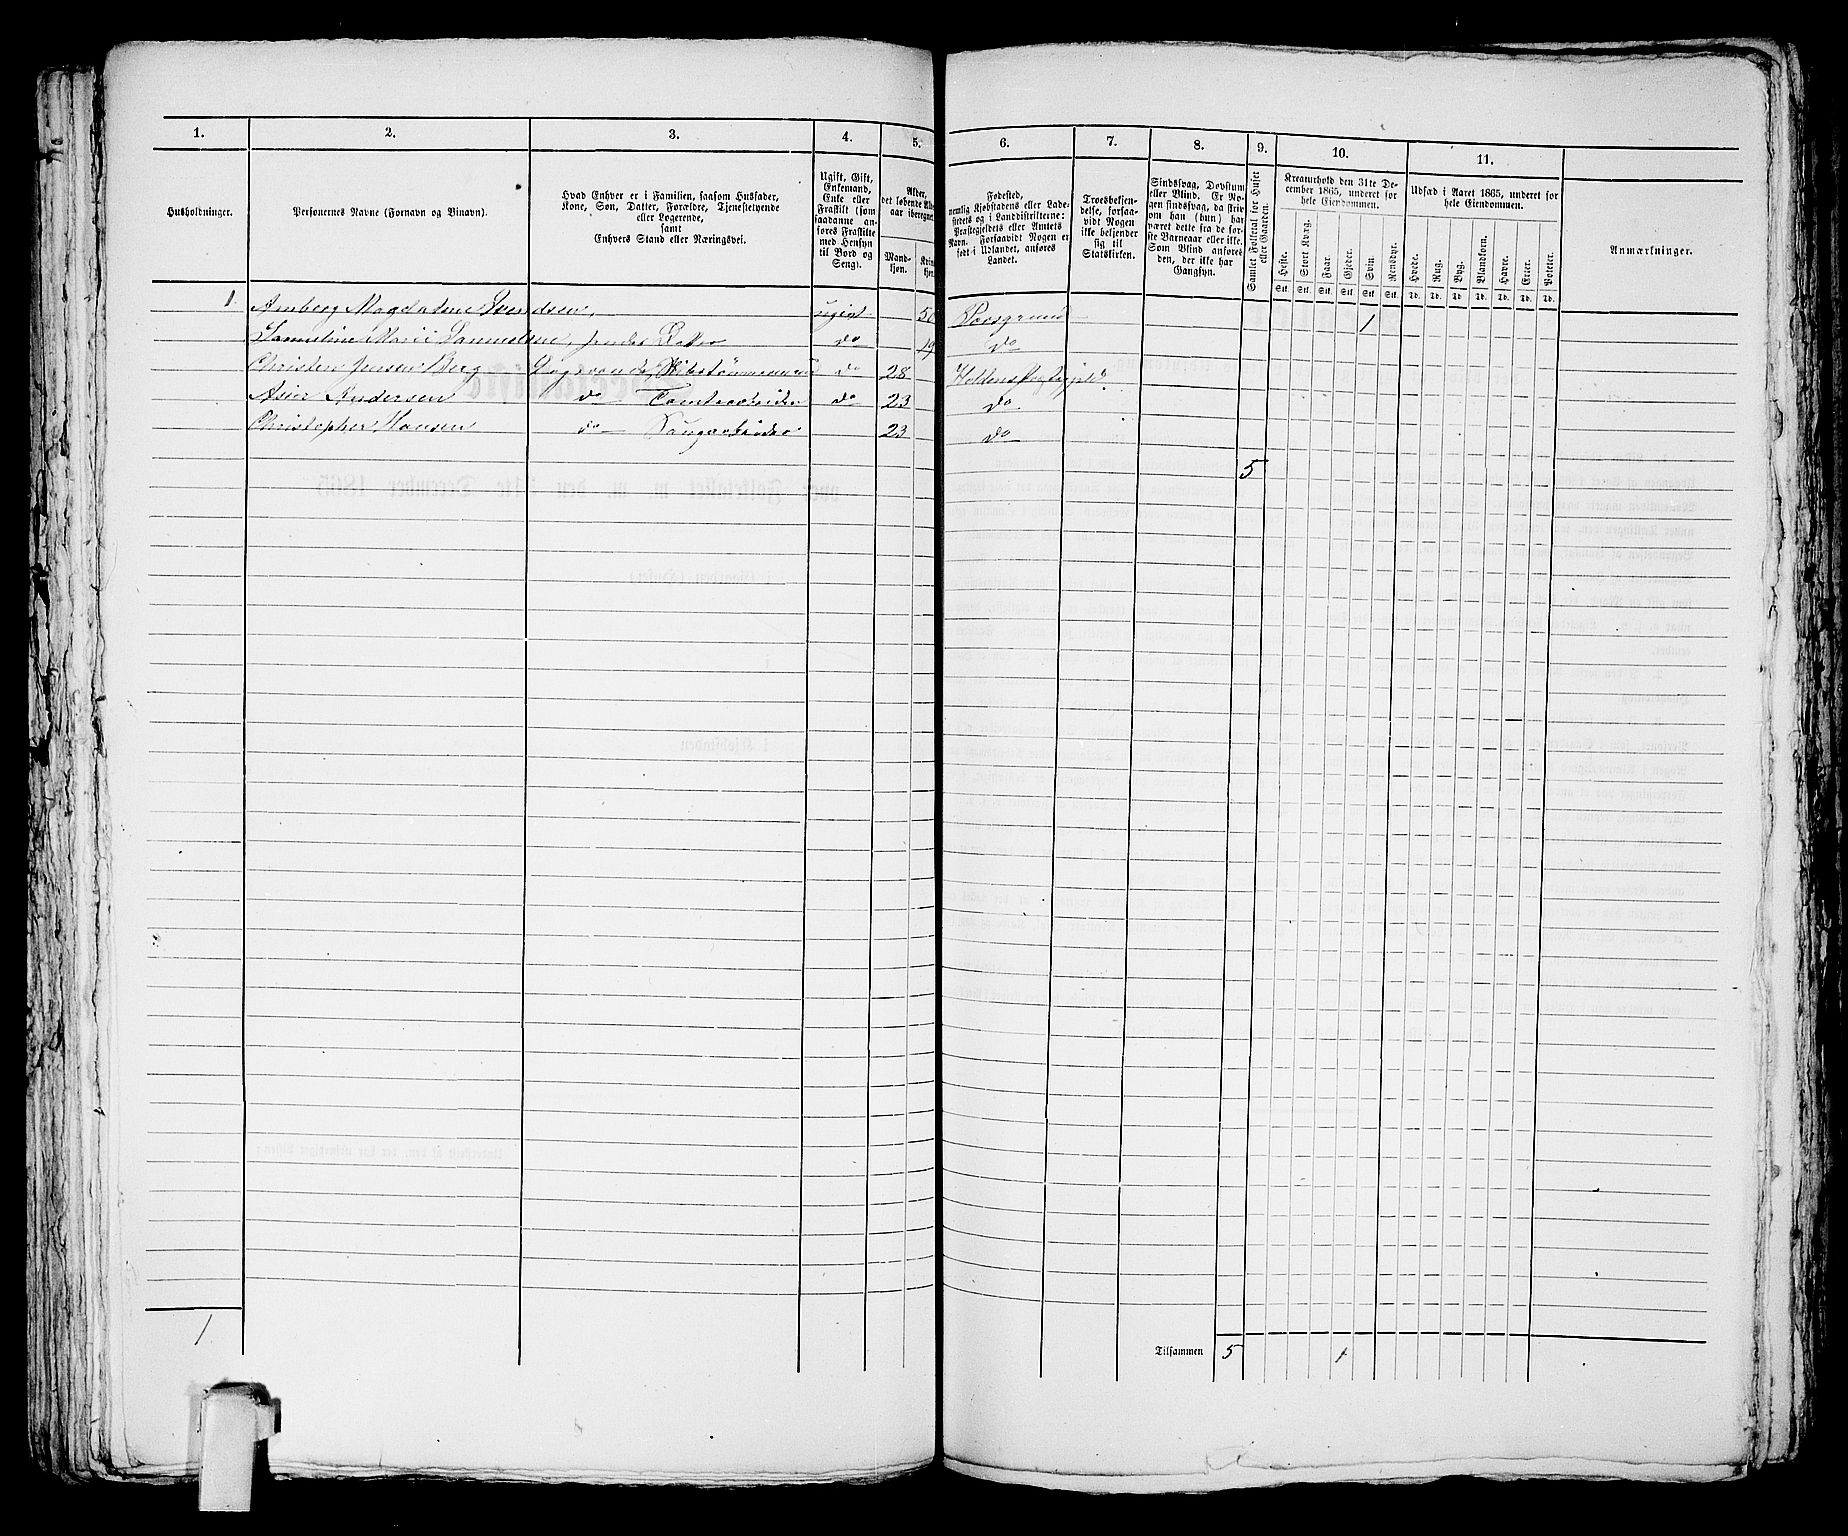 1. 2. 3. 4. 5. 6. 7. 8. 9. 10. 11.
Husholdninger.
Personernes Navne (Fornavn og Binavn).
Hvad Enhver er i Familien, saasom Husfader,
Kone, Søn, Datter, Forældre, Tjenestetyende
eller Logerende,
samt
Enhvers Stand eller Næringsvei.
Ugift, Gift,
Enkemand,
Enke eller
Fraskilt (som
saadanne an-
føres Fraskilte
med Hensyn
til Bord og
Seng).
Alder,
det løbende Alders-
aar iberegnet.
Mand-
kjøn.
Kvin-
kjøn.
Fødested,
nemlig Kjøbstadens eller Lade-
stedets og i Landdistrikterne:
Præstegjeldets eller Annexets
Navn. Forsaavidt Nogen er
født i Udlandet, anføres
Landet.
Troesbekjen-
delse, forsaa-
vidt Nogen
ikke bekjender
sig til
Statskirken.
Sindssvag, Døvstum
eller Blind. Er No-
gen sindssvag, da skriv
om han (hun) har
været dette fra de før-
ste Barneaar eller ikke.
Som Blind anføres
den, der ikke har
Gangsyn.
Samlet Folketal for Huset
eller Gaarden.
Kreaturhold den 31te De-
cember 1865, underet for
hele Eiendommen.
Heste. Stort Kvæg. Faar. Gjeder. Svin. Rensdyr.
Stk. Stk. Stk. Stk. Stk. Stk.
Udsæd i Aaret 1865, underet for
hele Eiendommen.
Hvede. Rug. Byg. Blandkorn. Havre. Erter. Poteter.
Td. Td. Td. Td. Td. Td. Td.
Anmærkninger.
1. Amberg Magdalene Svendsen, ugivt 50 Porsgrund 1
Samueline Marie Samuelsen, Datter do 19 do
Christen Jensen Berg Logerende, do 28
Asier Andersen do Tomtearbeider do 23 do
Christopher Hansen do 23 do
5
1
Tilsammen 5 1